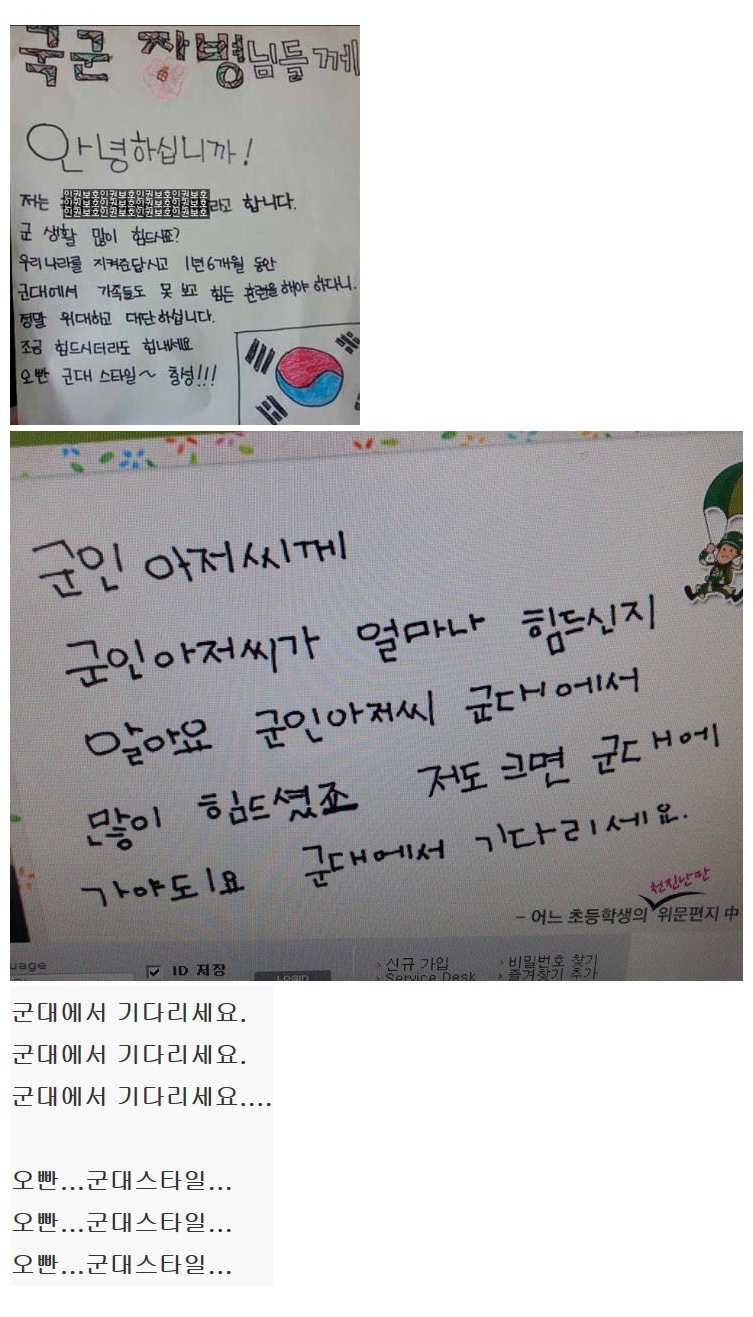 국군 장병님들께
안녕하십니까!
저는 인권보호인권보호인권보호인권보호 라고 합니다.
인권보호인권보호인권보호인권보호
인권보호인권보호인권보호인권보호
군 생활 많이 힘드시죠?
우리나라를 지켜준답시고 1년6개월 동안
군대에서 가족들도 못 보고 힘든 훈련을 해야 하다니.
정말 위대하고 대단하십니다.
조금 힘드시더라도 힘내세요
오빤 군대 스타일~ 충성!!!
군인 아저씨께
군인아저씨가 얼마나 힘드신지
알아요 군인아저씨 군대에서
많이 힘드셨죠 저도 크면 군대에
가야되요 군대에서 기다리세요.
천진난만
- 어느 초등학생의 위문편지 中
uage
ID 저장
LOGIN
› 신규 가입 › 비밀번호 찾기
› Service Desk › 즐겨찾기 추가
군대에서 기다리세요.
군대에서 기다리세요.
군대에서 기다리세요....
오빤...군대스타일...
오빤...군대스타일...
오빤...군대스타일...